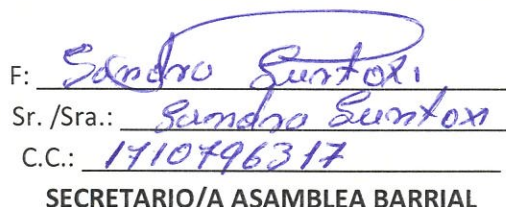 F: Sandro Suntaxi
Sr. /Sra.: Sandro Suntaxi
C.C.: 1710796317
SECRETARIO/A ASAMBLEA BARRIAL